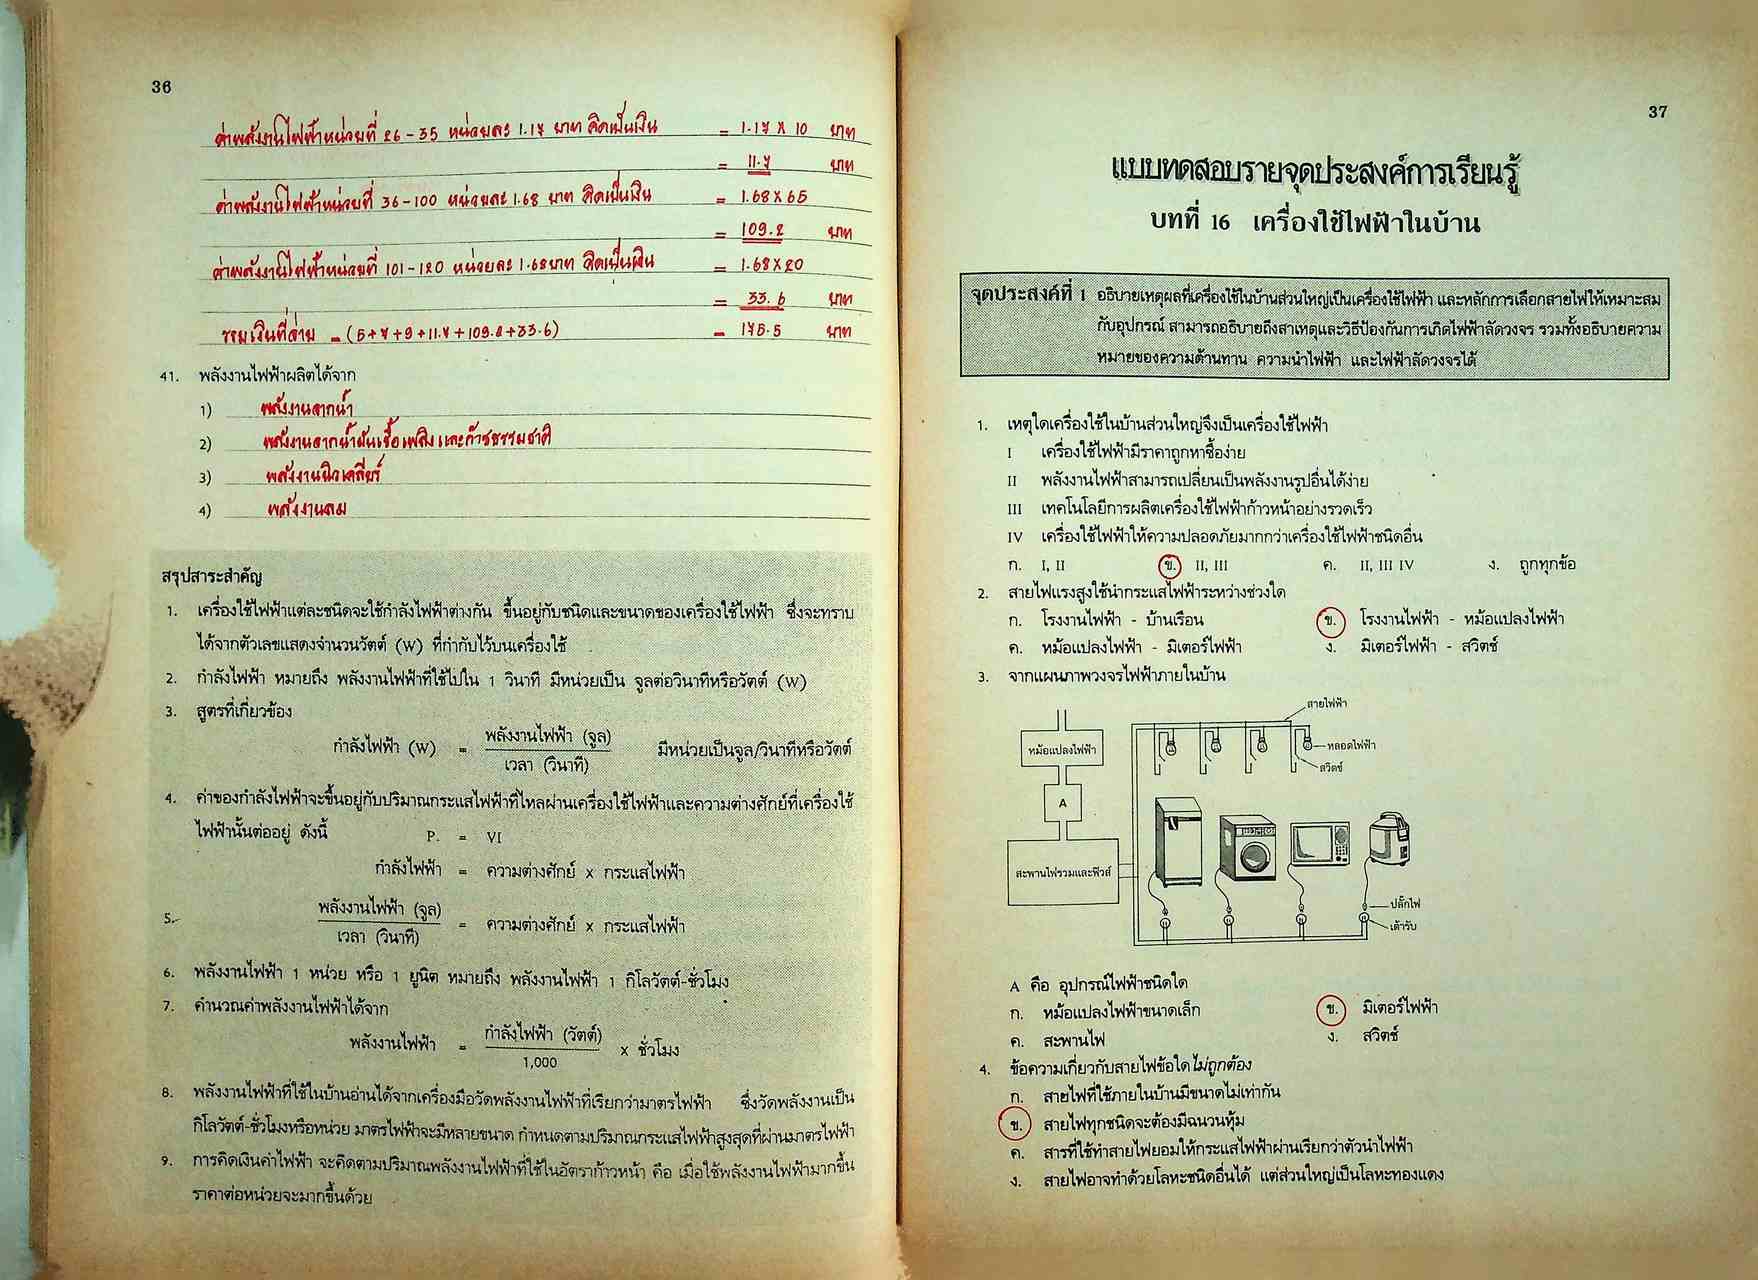 36
ค่าพลังงานไฟฟ้าหน่วยที่ 26-35 หน่วยละ 1.17 บาท คิดเป็นเงิน = 1.17 x 10 บาท
= 11.7 บาท
ค่าพลังงานไฟฟ้าหน่วยที่ 36-100 หน่วยละ 1.68 บาท คิดเป็นเงิน = 1.68 x 65
= 109.2 บาท
ค่าพลังงานไฟฟ้าหน่วยที่ 101-120 หน่วยละ 1.68 บาท คิดเป็นเงิน = 1.68 x 20
= 33.6 บาท
รวมเงินที่จ่าย = (5+7+9+11.7+109.2+33.6) = 175.5 บาท
41. พลังงานไฟฟ้าผลิตได้จาก
1) พลังงานจากน้ำ
2) พลังงานจากน้ำมันเชื้อเพลิงและก๊าซธรรมชาติ
3) พลังงานนิวเคลียร์
4) พลังงานลม
สรุปสาระสำคัญ
1. เครื่องใช้ไฟฟ้าแต่ละชนิดจะใช้กำลังไฟฟ้าต่างกัน ขึ้นอยู่กับชนิดและขนาดของเครื่องใช้ไฟฟ้า ซึ่งจะทราบ
ได้จากตัวเลขแสดงจำนวนวัตต์ (W) ที่กำกับไว้บนเครื่องใช้
2. กำลังไฟฟ้า หมายถึง พลังงานไฟฟ้าที่ใช้ไปใน 1 วินาที มีหน่วยเป็น จูลต่อวินาทีหรือวัตต์ (W)
3. สูตรที่เกี่ยวข้อง
กำลังไฟฟ้า (W) = พลังงานไฟฟ้า (จูล) มีหน่วยเป็นจูล/วินาทีหรือวัตต์
เวลา (วินาที)
4. ค่าของกำลังไฟฟ้าจะขึ้นอยู่กับปริมาณกระแสไฟฟ้าที่ไหลผ่านเครื่องใช้ไฟฟ้าและความต่างศักย์ที่เครื่องใช้
ไฟฟ้านั้นต่ออยู่ ดังนี้ P. = VI
กำลังไฟฟ้า = ความต่างศักย์ x กระแสไฟฟ้า
5. พลังงานไฟฟ้า (จูล) = ความต่างศักย์ x กระแสไฟฟ้า
เวลา (วินาที)
6. พลังงานไฟฟ้า 1 หน่วย หรือ 1 ยูนิต หมายถึง พลังงานไฟฟ้า 1 กิโลวัตต์-ชั่วโมง
7. คำนวณค่าพลังงานไฟฟ้าได้จาก
พลังงานไฟฟ้า = กำลังไฟฟ้า (วัตต์) x ชั่วโมง
1,000
8. พลังงานไฟฟ้าที่ใช้ในบ้านอ่านได้จากเครื่องมือวัดพลังงานไฟฟ้าที่เรียกว่ามาตรไฟฟ้า ซึ่งวัดพลังงานเป็น
กิโลวัตต์-ชั่วโมงหรือหน่วย มาตรไฟฟ้าจะมีหลายขนาด กำหนดตามปริมาณกระแสไฟฟ้าสูงสุดที่ผ่านมาตรไฟฟ้า
9. การคิดเงินค่าไฟฟ้า จะคิดตามปริมาณพลังงานไฟฟ้าที่ใช้ในอัตราก้าวหน้า คือ เมื่อใช้พลังงานไฟฟ้ามากขึ้น
ราคาต่อหน่วยจะมากขึ้นด้วย
37
แบบทดสอบรายจุดประสงค์การเรียนรู้
บทที่ 16 เครื่องใช้ไฟฟ้าในบ้าน
จุดประสงค์ที่ 1 อธิบายเหตุผลที่เครื่องใช้ในบ้านส่วนใหญ่เป็นเครื่องใช้ไฟฟ้า และหลักการเลือกสายไฟให้เหมาะสม
กับอุปกรณ์ สามารถอธิบายถึงสาเหตุและวิธีป้องกันการเกิดไฟฟ้าลัดวงจร รวมทั้งอธิบายความ
หมายของความต้านทาน ความนำไฟฟ้า และไฟฟ้าลัดวงจรได้
1. เหตุใดเครื่องใช้ในบ้านส่วนใหญ่จึงเป็นเครื่องใช้ไฟฟ้า
I เครื่องใช้ไฟฟ้ามีราคาถูกหาซื้อง่าย
II พลังงานไฟฟ้าสามารถเปลี่ยนเป็นพลังงานรูปอื่นได้ง่าย
III เทคโนโลยีการผลิตเครื่องใช้ไฟฟ้าก้าวหน้าอย่างรวดเร็ว
IV เครื่องใช้ไฟฟ้าให้ความปลอดภัยมากกว่าเครื่องใช้ไฟฟ้าชนิดอื่น
ก. I, II ข. II, III ค. II, III IV ง. ถูกทุกข้อ
2. สายไฟแรงสูงใช้นำกระแสไฟฟ้าระหว่างช่วงใด
ก. โรงงานไฟฟ้า - บ้านเรือน ข. โรงงานไฟฟ้า - หม้อแปลงไฟฟ้า
ค. หม้อแปลงไฟฟ้า - มิเตอร์ไฟฟ้า ง. มิเตอร์ไฟฟ้า - สวิตซ์
3. จากแผนภาพวงจรไฟฟ้าภายในบ้าน
สายไฟฟ้า
หม้อแปลงไฟฟ้า
หลอดไฟฟ้า
สวิตซ์
A
สะพานไฟรวมและฟิวส์
ปลั๊กไฟ
เต้ารับ
A คือ อุปกรณ์ไฟฟ้าชนิดใด
ก. หม้อแปลงไฟฟ้าขนาดเล็ก ข. มิเตอร์ไฟฟ้า
ค. สะพานไฟ ง. สวิตซ์
4. ข้อความเกี่ยวกับสายไฟข้อใดไม่ถูกต้อง
ก. สายไฟที่ใช้ภายในบ้านมีขนาดไม่เท่ากัน
ข. สายไฟทุกชนิดจะต้องมีฉนวนหุ้ม
ค. สารที่ใช้ทำสายไฟยอมให้กระแสไฟฟ้าผ่านเรียกว่าตัวนำไฟฟ้า
ง. สายไฟอาจทำด้วยโลหะชนิดอื่นได้ แต่ส่วนใหญ่เป็นโลหะทองแดง